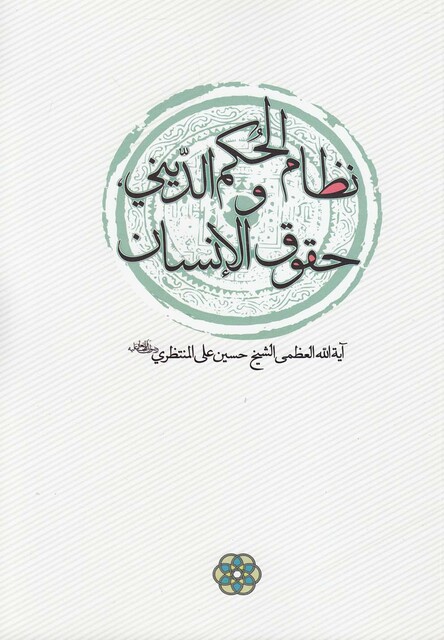 نظام الحُكم الدّيني،
و
حقوق الإنسان
آية الله العظمى الشيخ حسين علي المنتظري